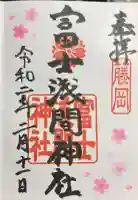 奉拝
勝岡
富士浅間神社
富士
神社
令和二年二月十一日